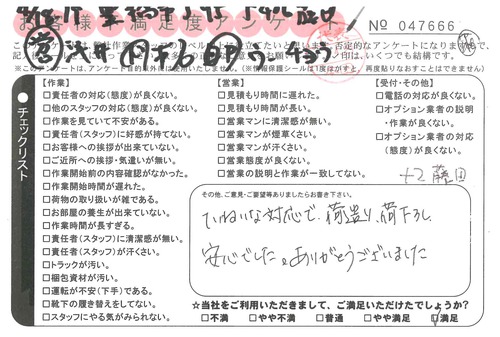 お客様満足度アンケート
No 047666
※このアンケートは、アンケート目的以外には使用いたしません。(※情報保護シールは1度はがすと、再度貼りなおすことはできません)
チェックリスト
【作業】
□責任者の対応(態度)が良くない。
□他のスタッフの対応(態度)が良くない。
□作業を見ていて不安がある。
□責任者(スタッフ)に好感が持てない。
□お客様への挨拶が出来ていない。
□ご近所への挨拶・気遣いが無い。
□作業開始前の内容確認がなかった。
□作業開始時間が遅れた。
□荷物の取り扱いが雑である。
□お部屋の養生が出来ていない。
□作業時間が長すぎる。
□責任者(スタッフ)に清潔感が無い。
□責任者(スタッフ)が汗くさい。
□トラックが汚い。
□梱包資材が汚い。
□運転が不安(下手)である。
□靴下の履き替えをしてない。
□スタッフにやる気がみられない。
【営業】
□見積もり時間に遅れた。
□見積もり時間が長い。
□営業マンに清潔感が無い。
□営業マンが煙草くさい。
□営業マンが汗くさい。
□営業態度が良くない。
□営業の説明と作業が一致してない。
【受付・その他】
□電話の対応が良くない。
□オプション業者の説明
・作業が良くない。
□オプション業者の対応
(態度)が良くない。
その他、ご意見・ご要望等ありましたらお書き下さい。
ていねいな対応で、荷造り、荷下ろし
安心でした。ありがとうございました
☆当社をご利用いただきまして、ご満足いただけたでしょうか?
□不満 □やや不満 □普通 □やや満足 □満足